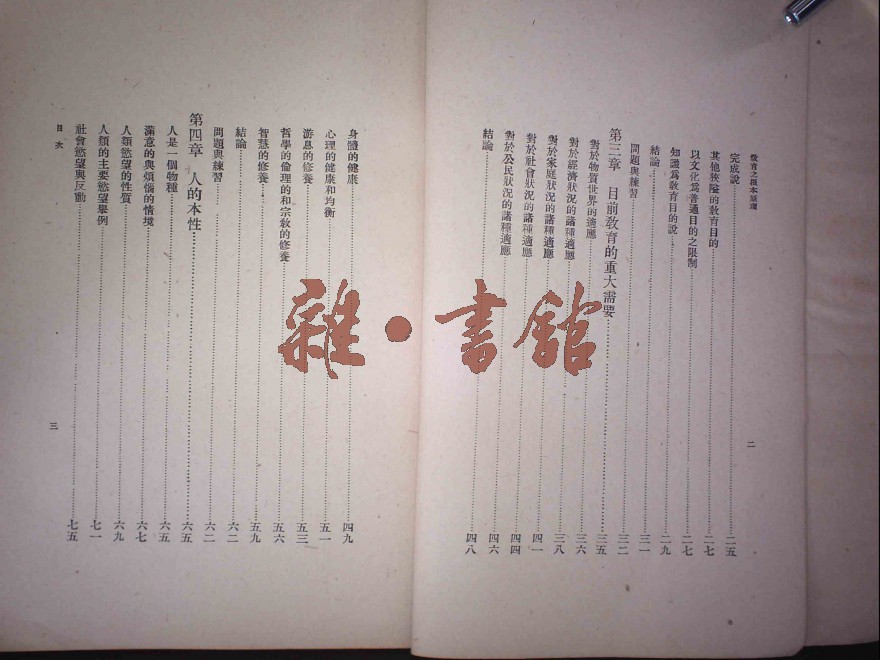 教育之根本原理
二
完成說 二五
其他狹隘的教育目的 二七
以文化為普通目的之限制 二七
知識為教育目的說 二九
結論 三一
問題與練習 三二
第三章 目前教育的重大需要 三五
對於物質世界的適應 三六
對於經濟狀況的諸種適應 三八
對於家庭狀況的諸種適應 四一
對於社會狀況的諸種適應 四四
對於公民狀況的諸種適應 四六
結論 四八
身體的健康 四九
心理的健康和均衡 五一
游息的修養 五三
哲學的倫理的和宗教的修養 五六
智慧的修養 五九
結論 六二
問題與練習 六二
第四章 人的本性 六五
人是一個物種 六五
滿意的與煩惱的情境 六七
人類慾望的性質 六九
人類的主要慾望舉例 七一
社會慾望與反動 七五
目次
三
雜·書館